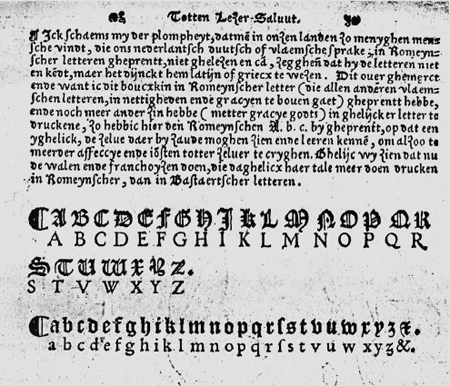 Totten Lezer Saluut.
Jck schaems my der plompheyt, datmē in onzen landen zo menyghen mens
sche vindt, die ons nederlantsch duutsch of vlaemsche sprake, in Romeyn-
scher letteren gheprentt, niet ghelezen en cā, zegghen dat hy de letteren niet
en kēdt, maer het dijnckt hem latijn of griecx te wezen. Dit ouer ghemerct
ende want ic dit boucxkin in Romeynscher letter (die allen anderen vlaem-
schen letteren, in nettigheden ende gracyen te bouen gaet) gheprentt hebbe,
ende noch meer ander zin hebbe (metter gracye gods) in ghelijcker letter te
druckene, zo hebbic hier den Romeynschen A. b. c. by gheprentt, op dat een
yghelick, de zelue daer by zaude moghen zien ende leeren kennē, om alzoo te
meerder affeccye ende iōsten totter zeluer te cryghen. Ghelijc wy zien dat nu
de walen ende franchoyzen doen, die daghelicx haer tale meer doen drucken
in Romeynscher, dan in Bastaertscher letteren.
A B C D E F G H J K L M N O P Q R
A B C D E F G H I K L M N O P Q R
S T U W X Y Z.
S T V W X Y Z
a b c d e f g h i k l m n o p q r ſ s t v u w x y z &.
a b c d e f g h i k l m n o p q r ſ s t v u w x y z &.